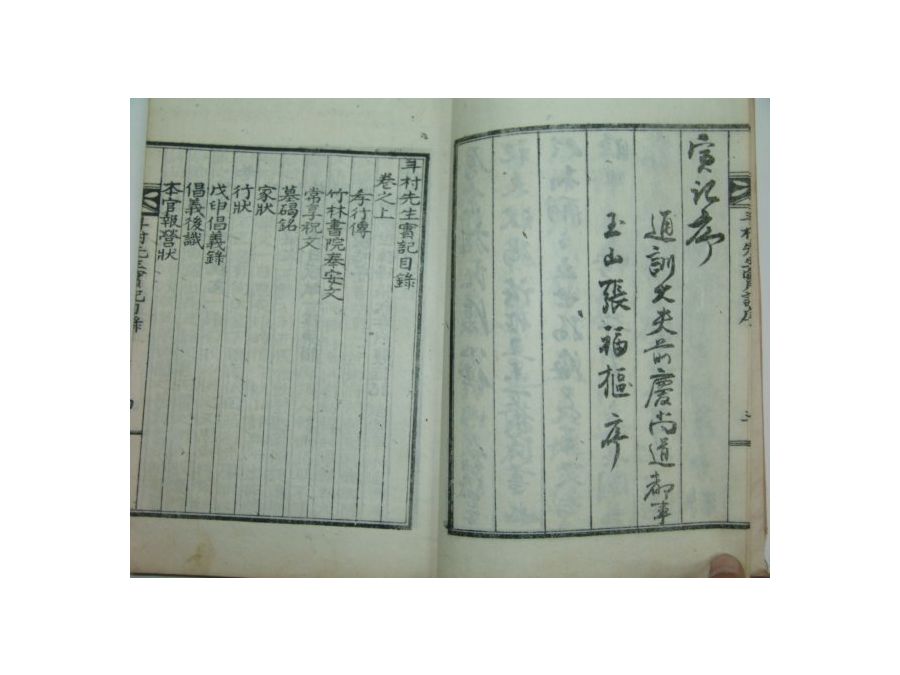 實記序
通訓大夫前慶尙道都事
玉山張福樞序
斗村先生實記序
斗村先生實記目錄
卷之上
孝行傳
竹林書院奉安文
常享祝文
墓碣銘
家狀
行狀
戊申倡義錄
倡義後識
本官報營狀
斗村先生實記目錄